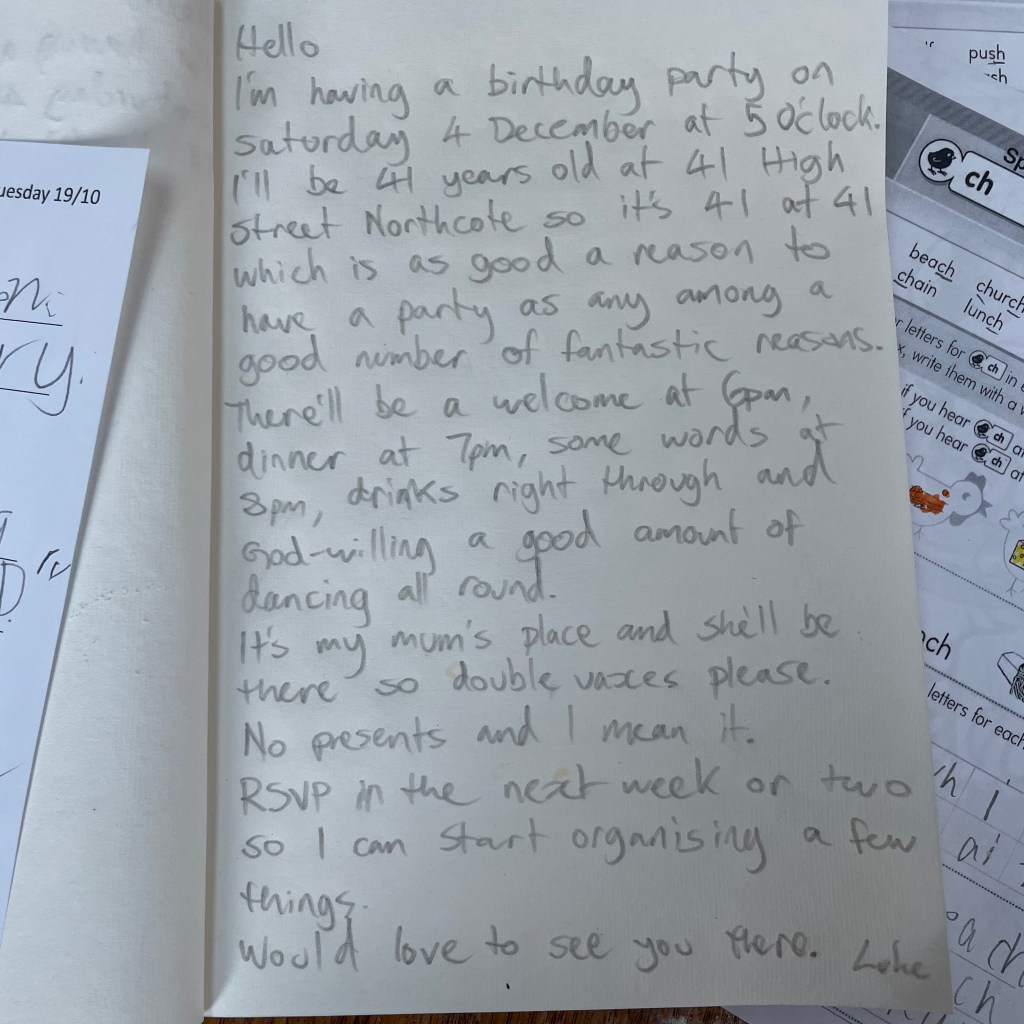 Hello
I'm having a birthday party on
saturday 4 December at 5 O'clock.
I'll be 41 years old at 41 High
street Northcote so it's 41 at 41
which is as good a reason to
have a party as any among a
good number of fantastic reasons.
There'll be a welcome at 6pm,
dinner at 7pm, some words at
8pm, drinks right through and
God-willing a good amount of
dancing all round.
It's my mum's place and she'll be
there so double vaxxes please.
No presents and I mean it.
RSVP in the next week or two
so I can start organising a few
things.
Would love to see you there. Luke
uesday 19/10
ry.
push
sh
Sp
ch
beach church
chain lunch
r letters for ch in
, write them with a
if you hear ch a
f you hear ch at
nch
letters for each
ch